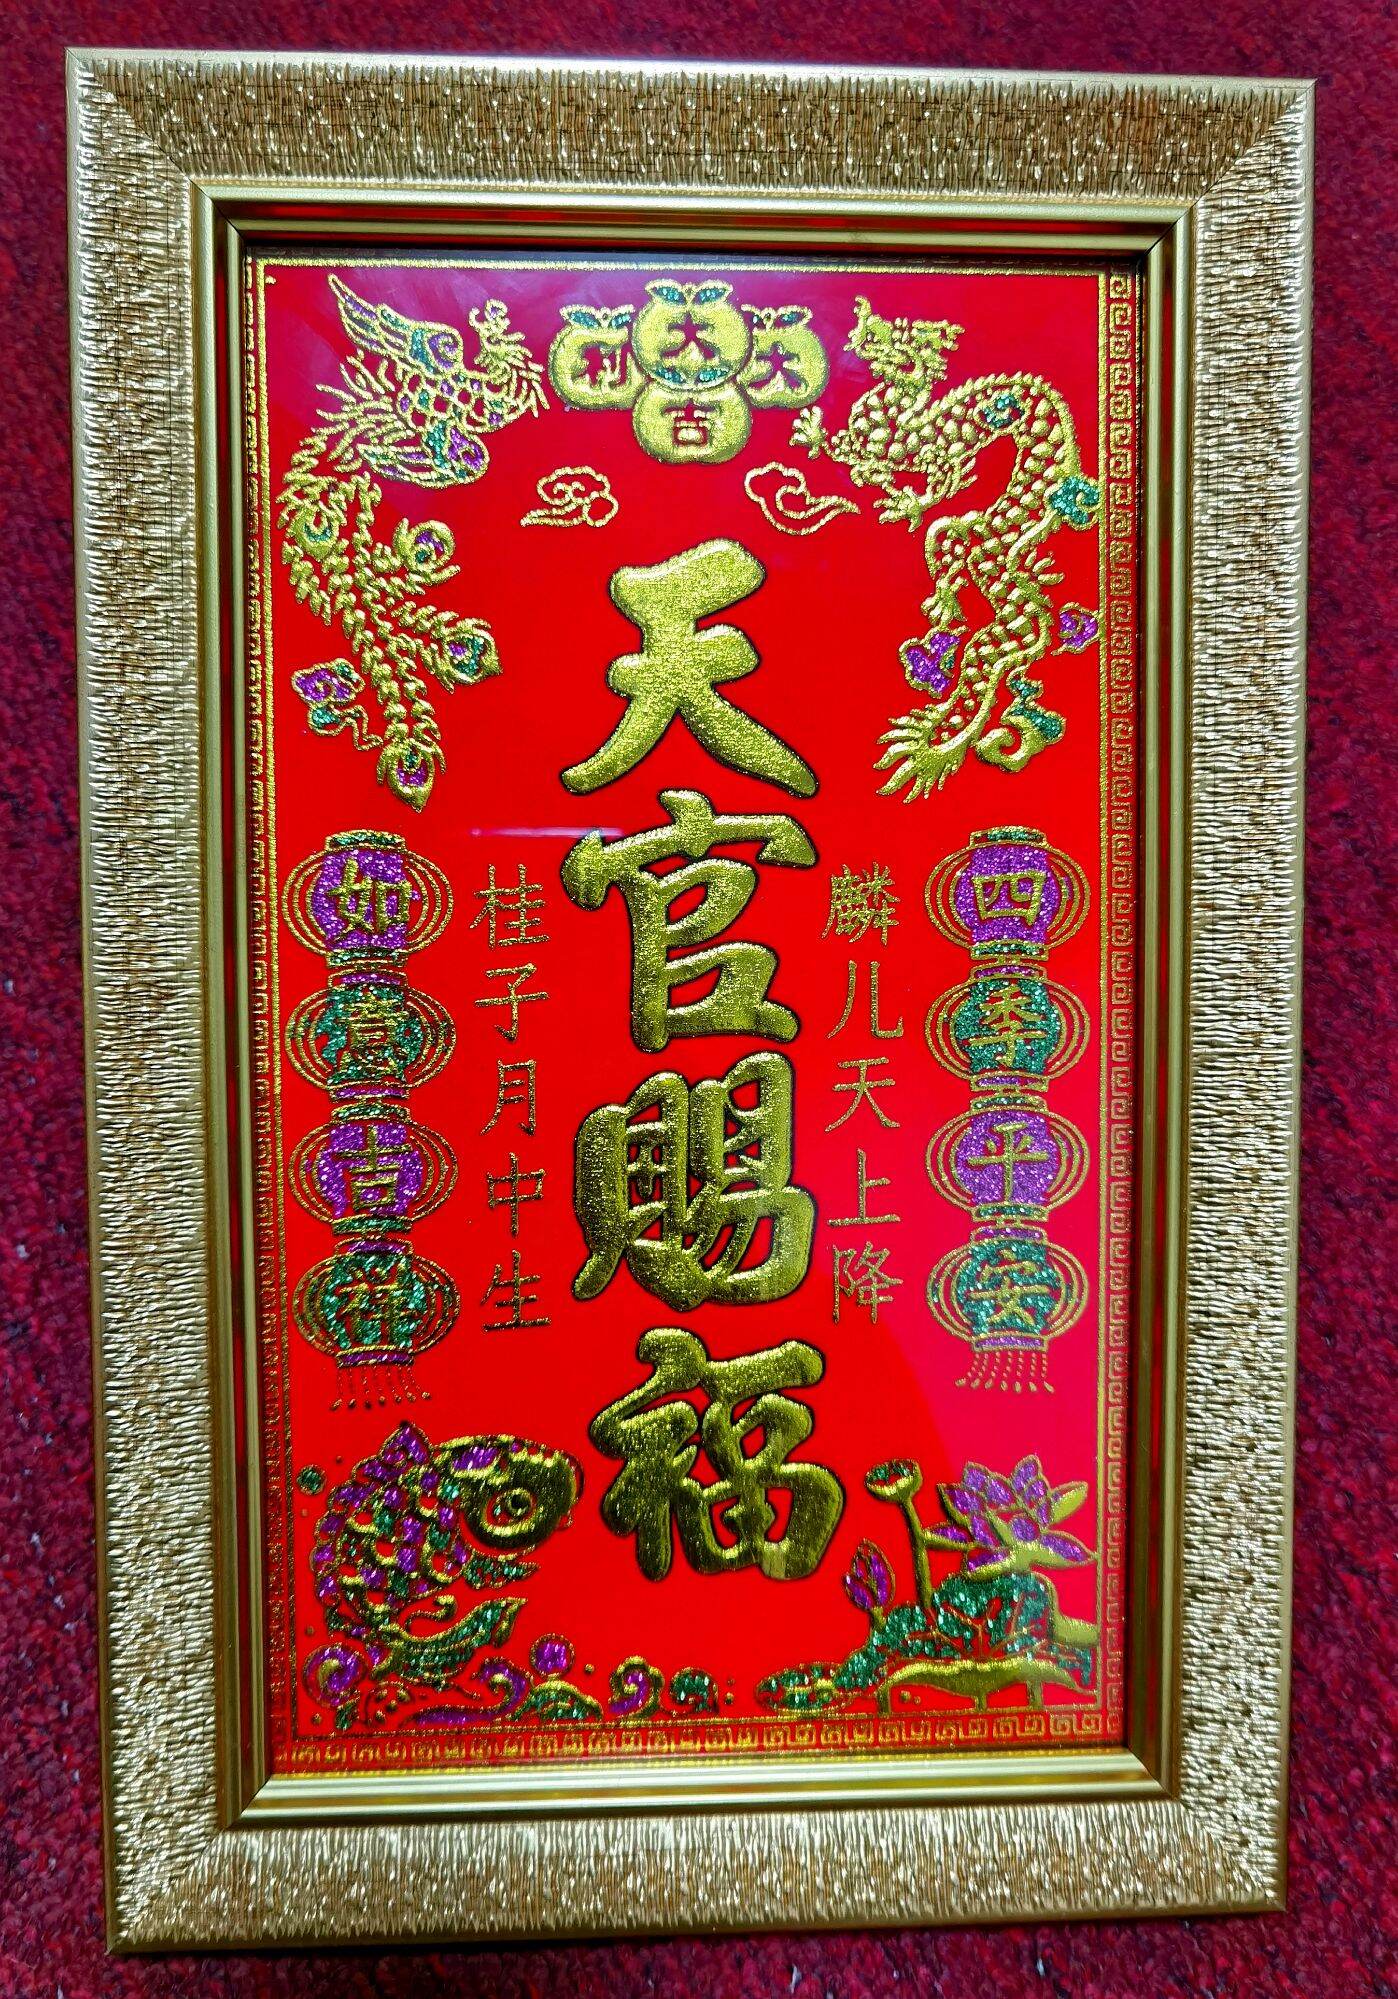 大吉
大利
四季平安
麟儿天上降
天官赐福
桂子月中生
如意吉祥